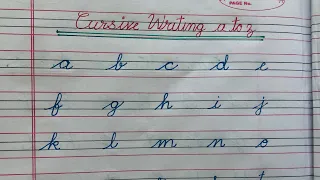 PAGE No.
Cursive Writing a to z
a b c d e
f g h i j
k l m n o